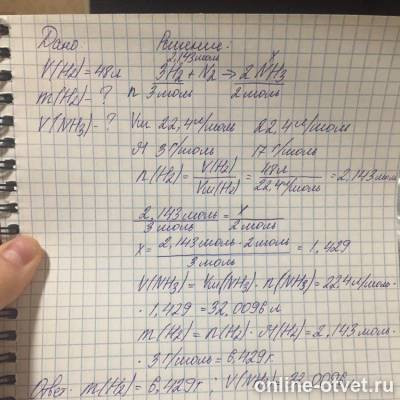 Дано Решение:
2,143моль x
V(H2)=48л 3H2 + N2 => 2NH3
m(H2)-? n 3моль 2моль
V(NH3)-? Vm 22,4л/моль 22,4л/моль
M 3г/моль 17г/моль
n(H2)= V(H2)/Vm(H2) = 48л/22,4л/моль = 2,143моль
2,143моль/3моль = x/2моль
x = 2,143моль·2моль/3моль = 1,429
V(NH3)=Vm(NH3)·n(NH3)=22,4л/моль·
·1,429=32,0096л
m(H2)=n(H2)·M(H2)=2,143моль·
·3г/моль=6,429г
Ответ: m(H2)=6,429г; V(NH3)=32,0096
online-otvet.ru